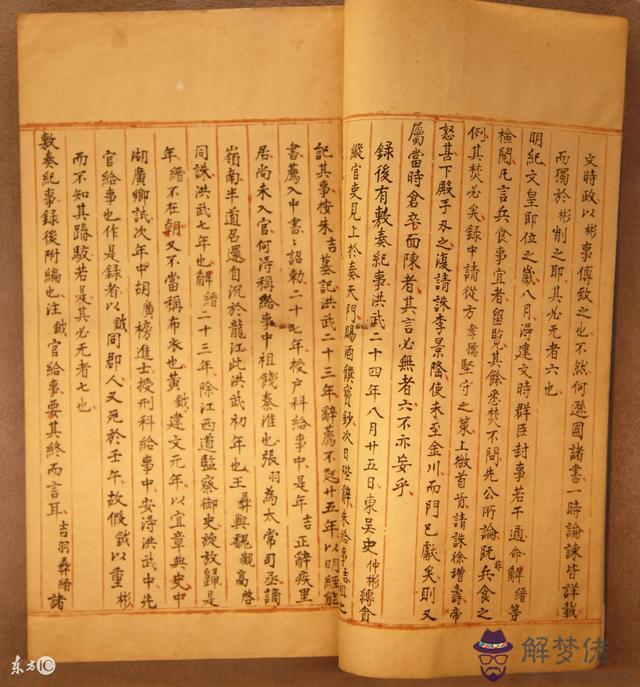 文時政以彬事傅致之也不然何遜國諸書一時論諫皆詳載
而獨於彬削之耶其必无者六也
明紀文皇即位之歲八月淂建文時群臣封事若干通命解縉等
檢閱凡言兵食事宜者留覧其餘悉焚不問先公所論既非兵食之
例其焚必矣録中請從方孝孺堅守之策上徴首肯請誅徐增壽帝
怒甚下殿手刃之復請誅李景隆使未至金川而門已獻矣則又
屬當時倉卒面陳者其言必無者六不亦妄乎
録後有敷奏紀事洪武二十四年八月廿五日東吴史仲彬縳貪
縱官吏見上於奏天門賜酒饌寳鈔次日陛辭朱給事吉祖之
記其事桉朱吉墓記洪武二十三年辭薦不起廿五年以明經能
書薦入中書二詔勅二十七年授户科給事中是年吉正辭疾里
居尚未入官何淂稱給事中祖餞秦淮也張羽為太常司丞謫
嶺南半道召還自沉於龍江此洪武初年也王彞與魏觀高啓
同誅洪武七年也解縉二十三年除江西道監察御史旋放歸是
年縉不在朝又不當稱布衣也黄鉞建文元年以宜章典史中
湖廣鄉試次年中胡廣榜進士授刑科給事中安淂洪武中先
官給事也作是録者以鉞同郡人又死於壬午故假鉞以重彬
而不知其踳駮若是其必无者七也
敷奏紀事録後附編也注鉞官給事要其終而言耳吉羽彞縉諸
解梦佬
东方IC